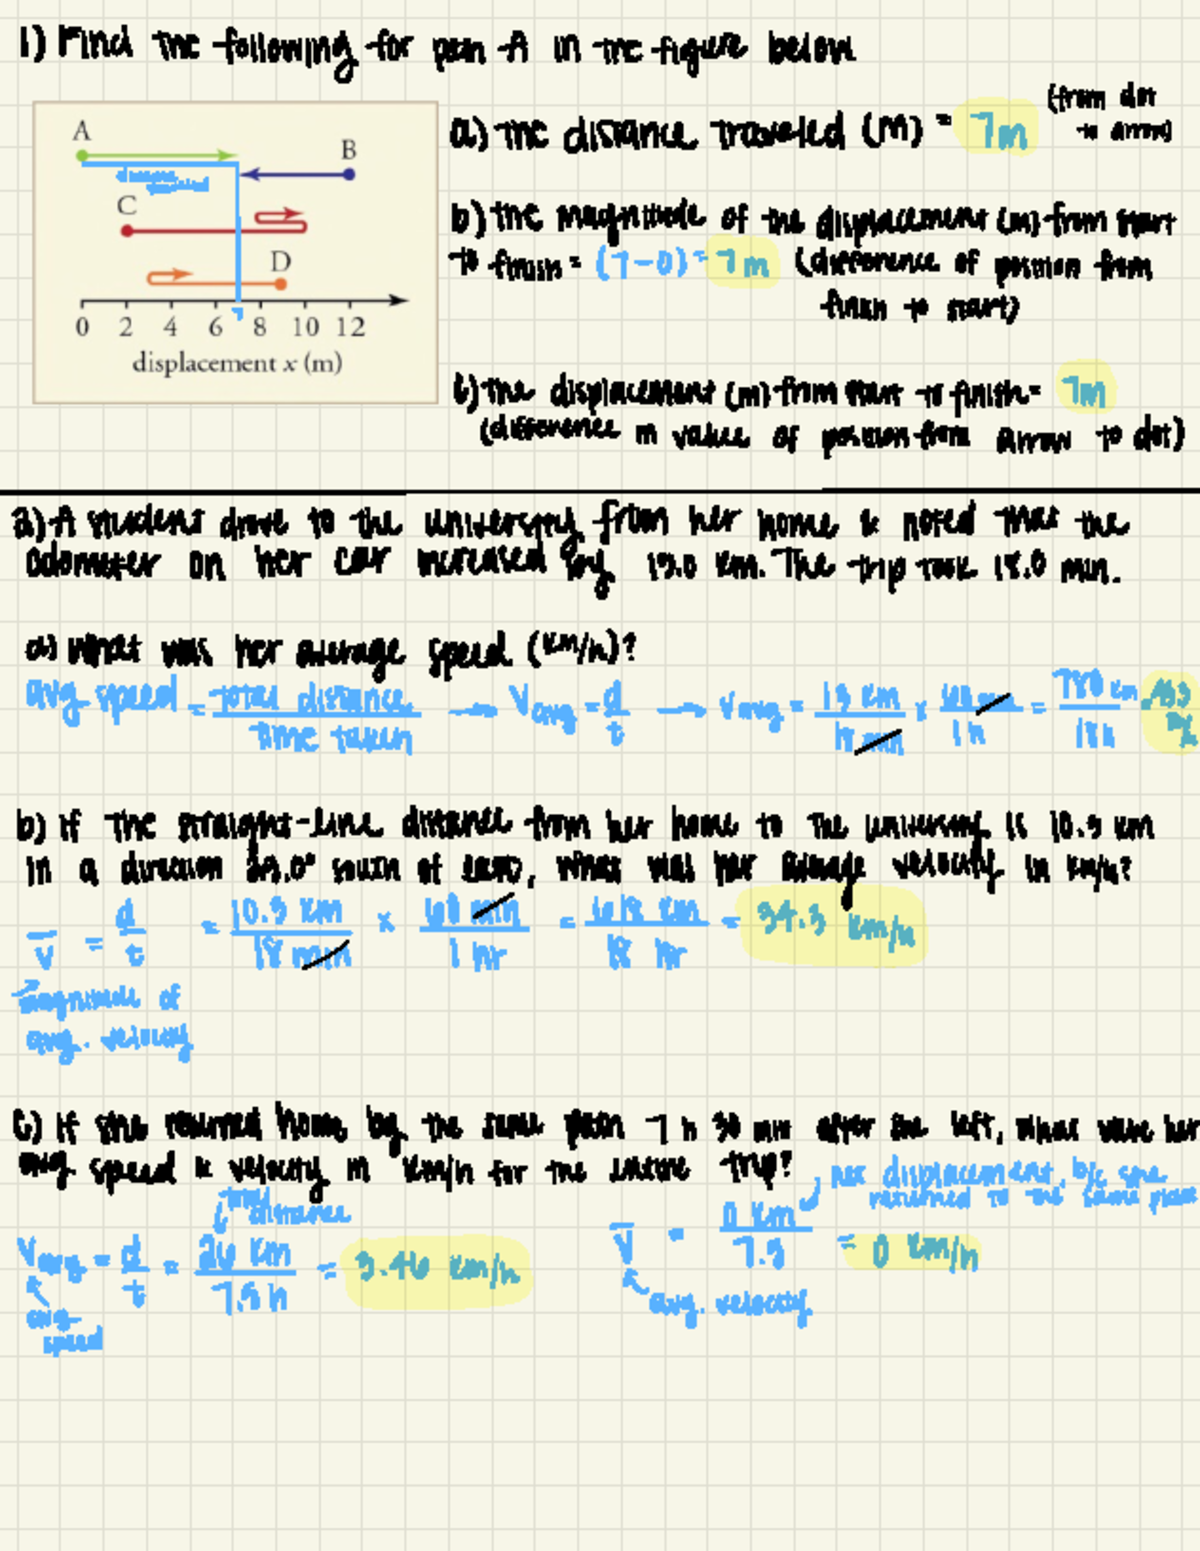 1) Find the following for path A in the figure below
a) the distance traveled (m) = 7m (from dot to arrow)
A
B
C
D
distance traveled
7
0 2 4 6 8 10 12
displacement x (m)
b) the magnitude of the displacement (m) from start
to finish = (7-0) = 7m (difference of position from
finish to start)
c) the displacement (m) from start to finish = 7m
(difference in value of position from arrow to dot)
2) A student drove to the university from her home & noted that the
odometer on her car increased by 13.0 km. The trip took 18.0 min.
a) What was her average speed (km/h)?
avg speed = total distance / time taken → Vavg = d/t → Vavg = 13 km / 18 min x 60 min / 1h = 780 km / 18h
b) if the straight-line distance from her home to the university is 10.3 km
in a direction 25.0° south of east, what was her average velocity in km/h?
v = d/t = 10.3 km / 18 min x 60 min / 1 hr = 618 km / 18 hr = 34.3 km/h
magnitude of
avg. velocity
c) if she returned home by the same path 7 h 30 min after she left, what were her
avg speed & velocity in km/h for the entire trip?
net displacement, b/c she
returned to the same place
total distance
Vavg = d/t = 26 km / 7.5 h = 3.46 km/h
v = 0 km / 7.5 = 0 km/h
avg speed
avg. velocity